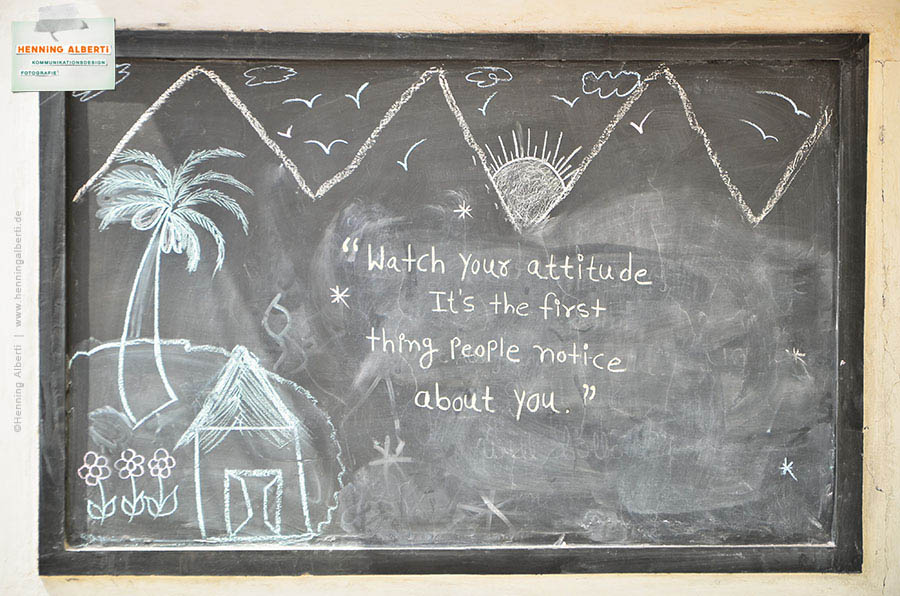 HENNING ALBERTI
KOMMUNIKATIONSDESIGN
FOTOGRAFIE
©Henning Alberti | www.henningalberti.de
“Watch your attitude
It's the first
thing people notice
about you.”